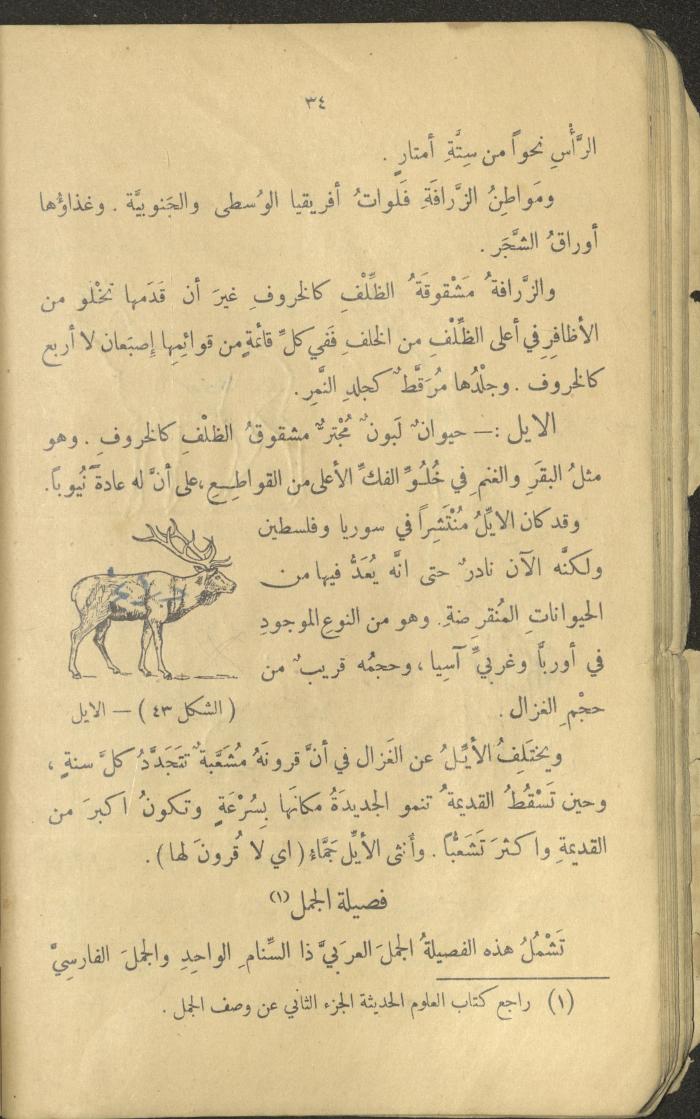 ٣٤
الرَّأْسِ نحواً من سِتَّةِ أمتارٍ .
ومَواطِنُ الزَّرافَةِ فَلَواتُ أفريقيا الوُسطى والجَنوبيَّة . وغذاؤُها
أوراقُ الشَّجَر .
والزَّرافةُ مَشْقوقَةُ الظِّلْفِ كالخروفِ غيرَ أن قَدَمها تخْلو من
الأظافِرِ في أعلى الظِّلْفِ من الخلفِ فَفي كلِّ قائمةٍ من قوائِمِها إصبَعان لا أربع
كالخروف . وجلْدُها مُرَقَّطٌ كجلدِ النَّمِر.
الايل :— حيوانٌ لَبونٌ مُجْترٌّ مشقوقُ الظلْفِ كالخروفِ . وهو
مثلُ البقَرِ والغنمِ في خُلُوِّ الفكِّ الأعلى من القواطِعِ ،على أنَّ له عادةً نُيوباً.
وقد كان الايِّلُ مُنْتَشِراً في سوريا وفلسطين
ولكنَّه الآن نادرٌ حتى انَّه يُعَدُّ فيها من
الحيواناتِ المُنقرِضةِ. وهو من النوعِ الموجودِ
في أوربَّا وغربيِّ آسيا ، وحجمُه قريبٌ من
حجْمِ الغزال .
(الشكل ٤٣) — الايل
ويختَلِفُ الأيِّلُ عن الغَزال في أنَّ قرونَهُ مُشَعَّبةٌ تتَجَدَّدُ كلَّ سنةٍ ،
وحين تَسْقُطُ القديمةُ تنمو الجديدَةُ مكانَها بِسُرْعَةٍ وتكونُ اكبرَ من
القديمةِ واكثرَ تَشَعُّباً . وأُنثى الأيِّل جَمَّاءُ (اي لا قُرونَ لها).
فصيلة الجمل (١)
تَشْمُلُ هذه الفصيلةُ الجملَ العرَبيَّ ذا السِّنامِ الواحِدِ والجملَ الفارسِيَّ
(١) راجع كتاب العلوم الحديثة الجزء الثاني عن وصف الجمل .